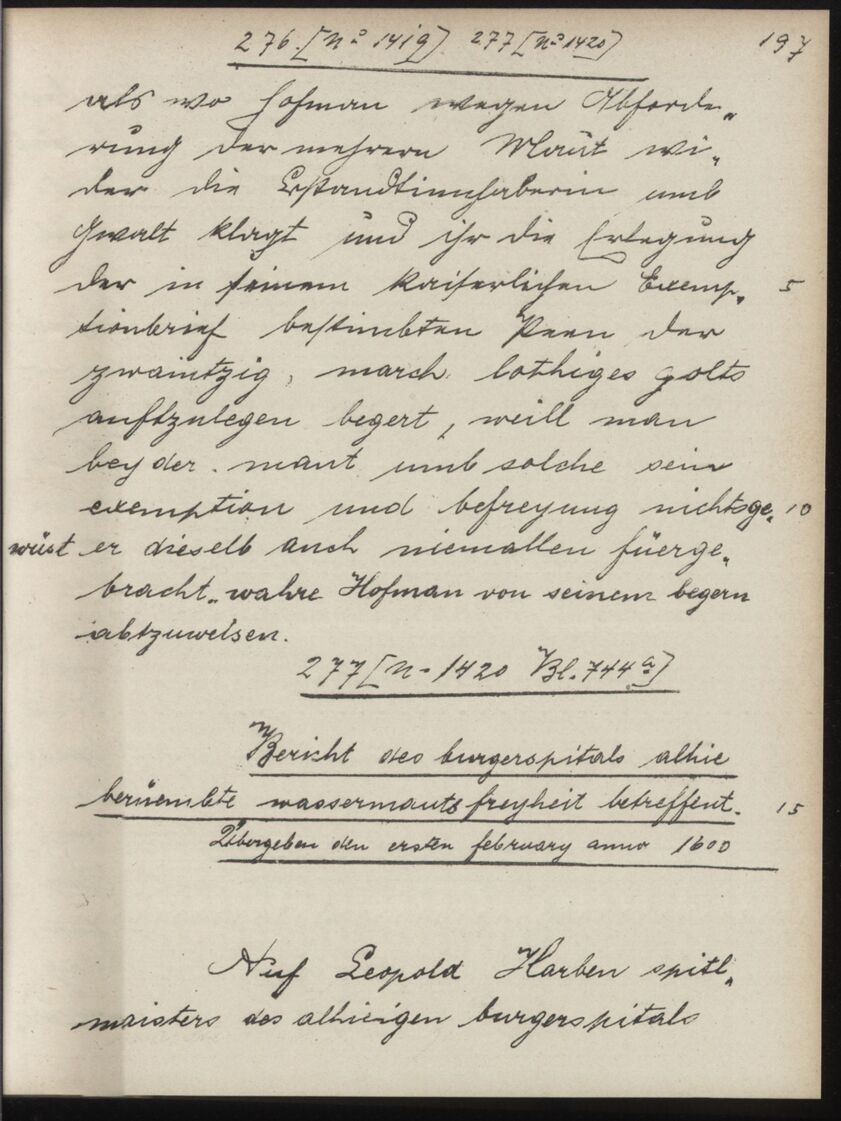 276.[No 1419] 277[No 1420] 197
als wo Hofman wegen Abforde„
rung der mehrern Maut wi„
der die Bstandtinnhaberin umb
Gwalt klagt und ihr die Erlegung
der in seinem kaiserlichen Exemp„ 5
tionbrief bestimbten Peen der
zwaintzig, march lothiges golts
aufzulegen begert, weill man
bey der maut umb solche sein
exemption und befreyung nichts ge„ 10
wüst er dieselb auch niemallen füerge„
bracht„ wahre Hofman von seinem begern
abtzuweisen.
277[No 1420 Bl. 744a]
Bericht des burgerspitals alhie
berüembte wassermautsfreyheit betreffent. 15
Übergeben den ersten february anno 1600
Auf Leopold Harben spitl„
maisters des alhieigen burgerspitals